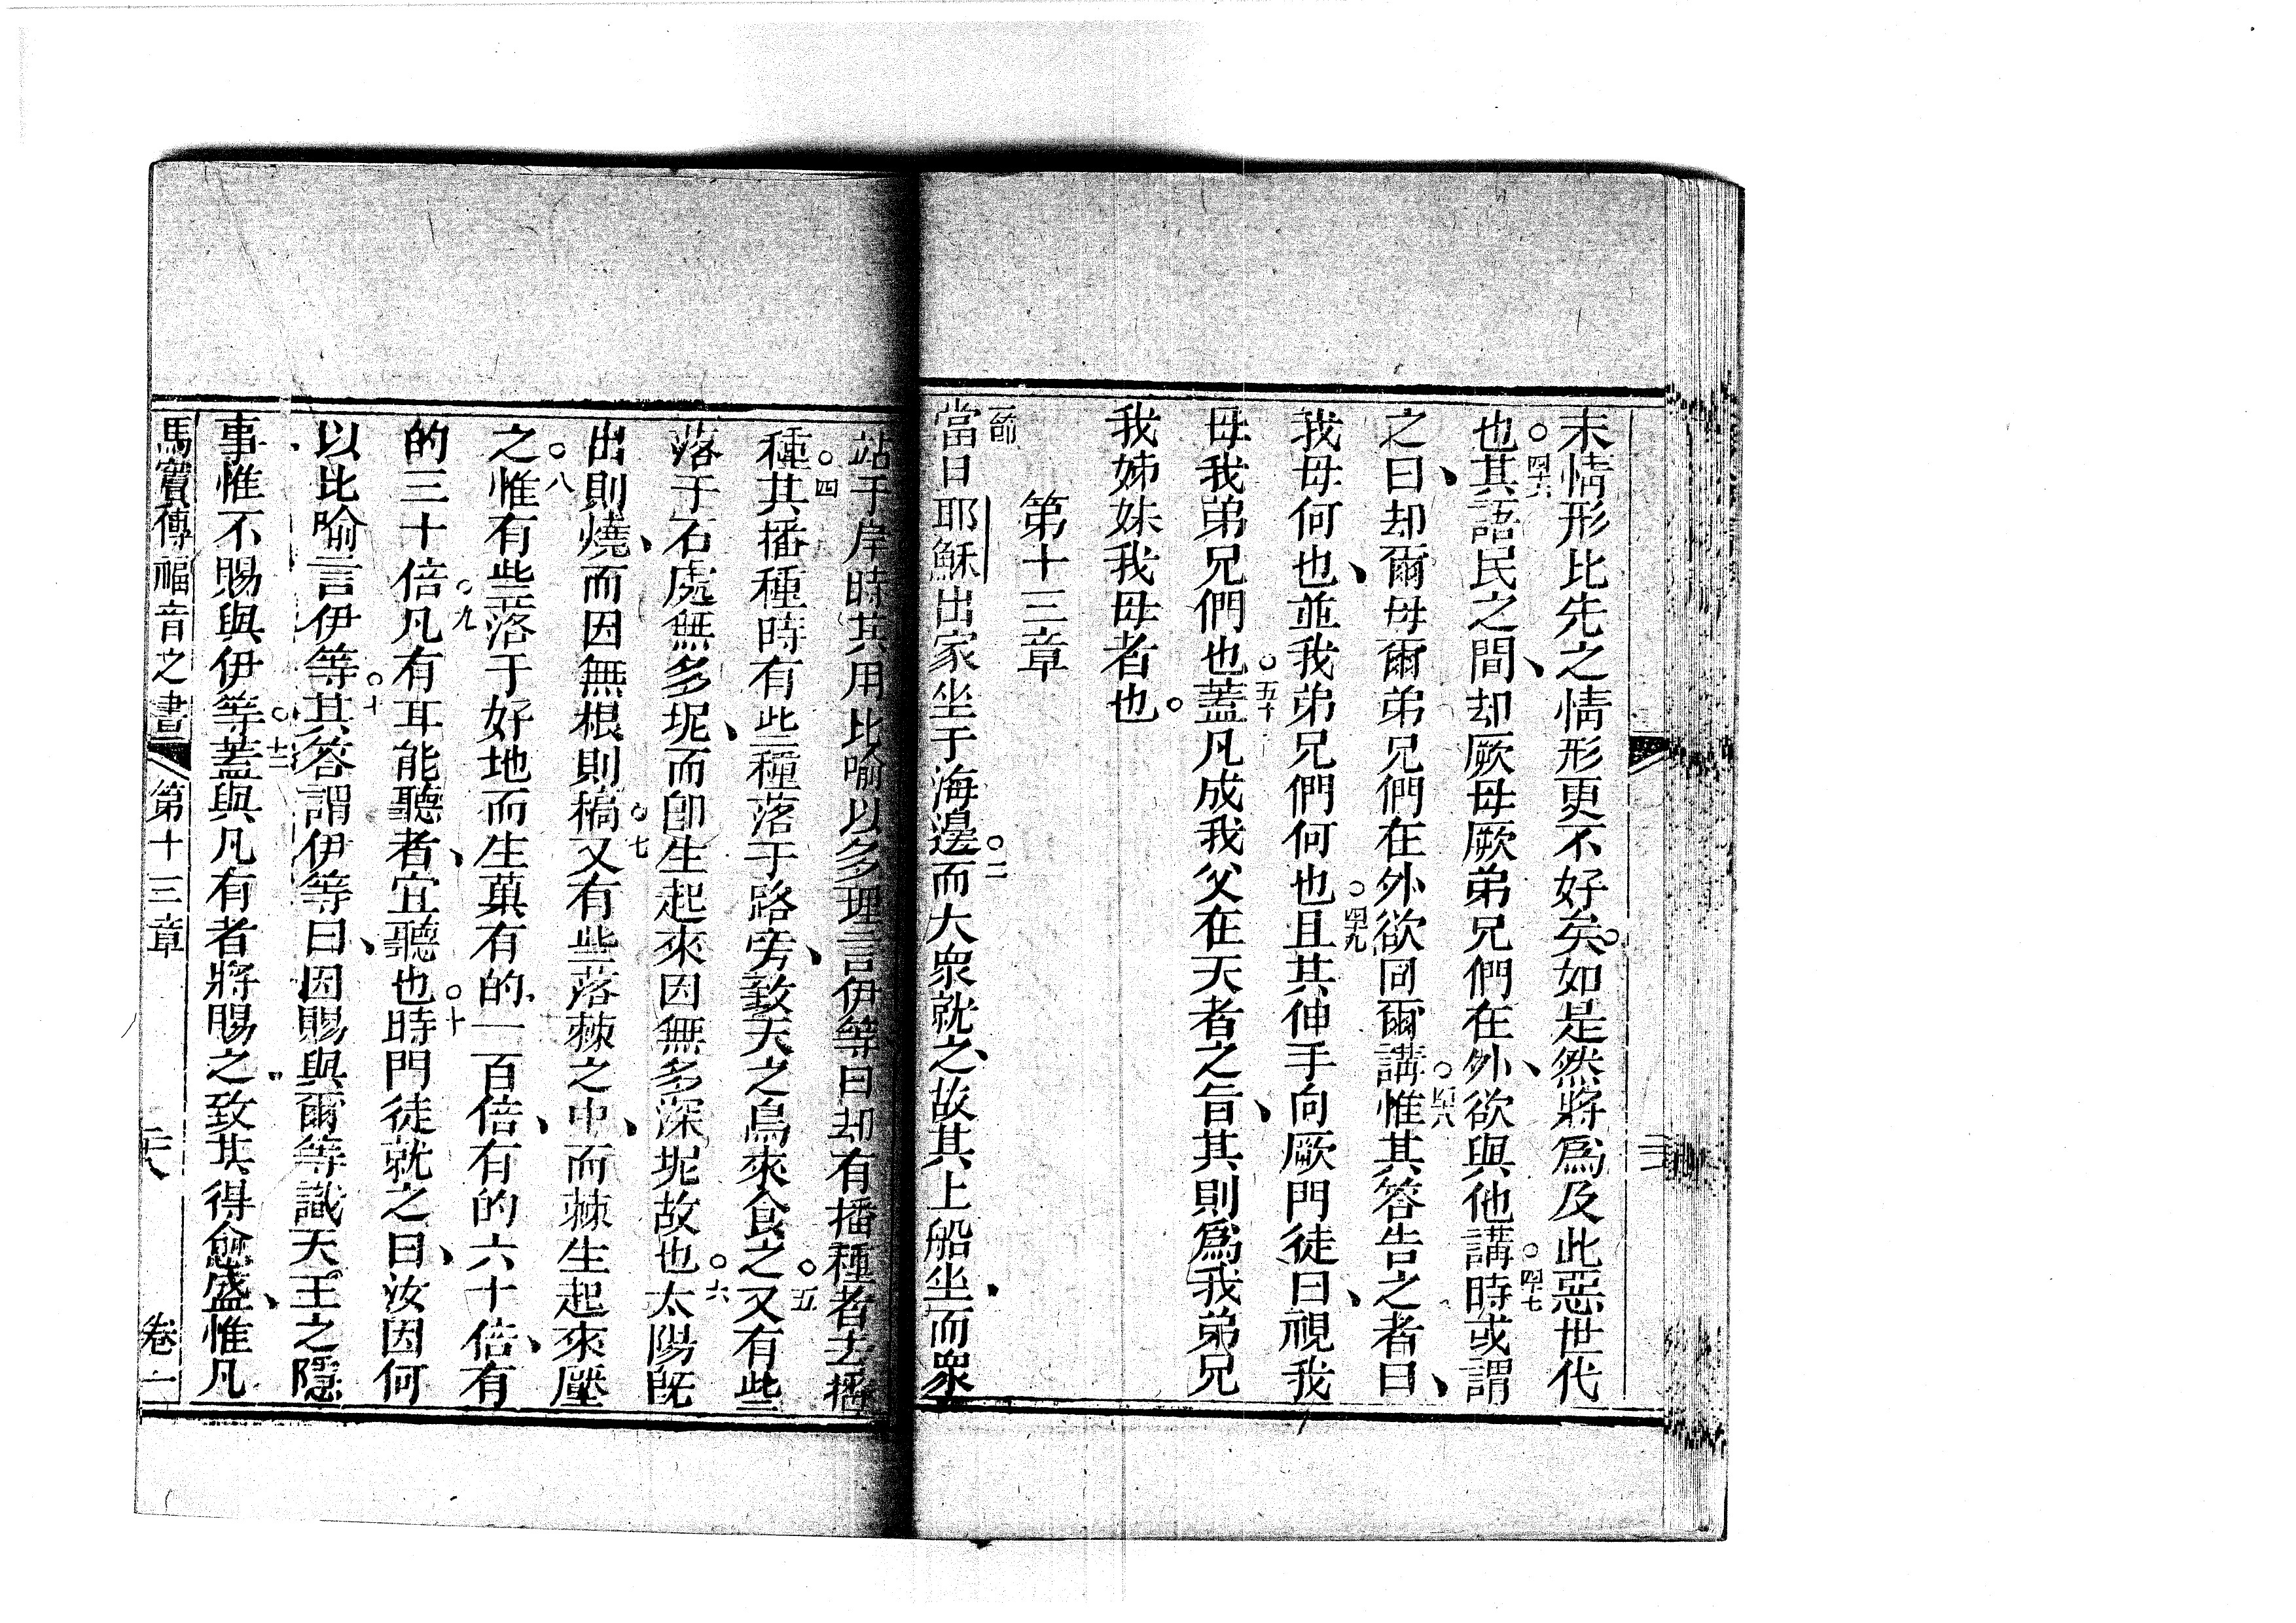 末情形比先之情形更不好矣。如是然將爲及此惡世代
也。四六其語民之間、却厥母厥弟兄們在外、欲與他講。四七時或謂
之曰、却爾母爾弟兄們在外欲同爾講。四八惟其答告之者曰、
我母何也、並我弟兄們何也。四九且其伸手向厥門徒曰、視我
母我弟兄們也。五十蓋凡成我父在天者之旨、其則爲我弟兄
我姊妹我母者也。
第十三章
一節當日耶穌出家坐于海邊。二而大衆就之、故其上船坐、而衆
站于岸時其用比喻以多理言伊等曰却有播種者去播
種。四其播種時有些種落于路旁、致天之鳥來食之。五又有些
落于石處無多坭、而卽生起來因無多深坭故也。六太陽旣
出則燒、而因無根則稿。七又有些落棘之中、而棘生起來壓
之。八惟有些落于好地而生菓有的一百倍、有的六十倍、有
的三十倍。九凡有耳能聽者、宜聽也。十時門徒就之曰、汝因何
以比喻言伊等。十其答謂伊等曰、因賜與爾等識天王之隱
事惟不賜與伊等。十二蓋與凡有者將賜之、致其得愈盛、惟凡
馬竇傳福音之書 第十三章 卷一